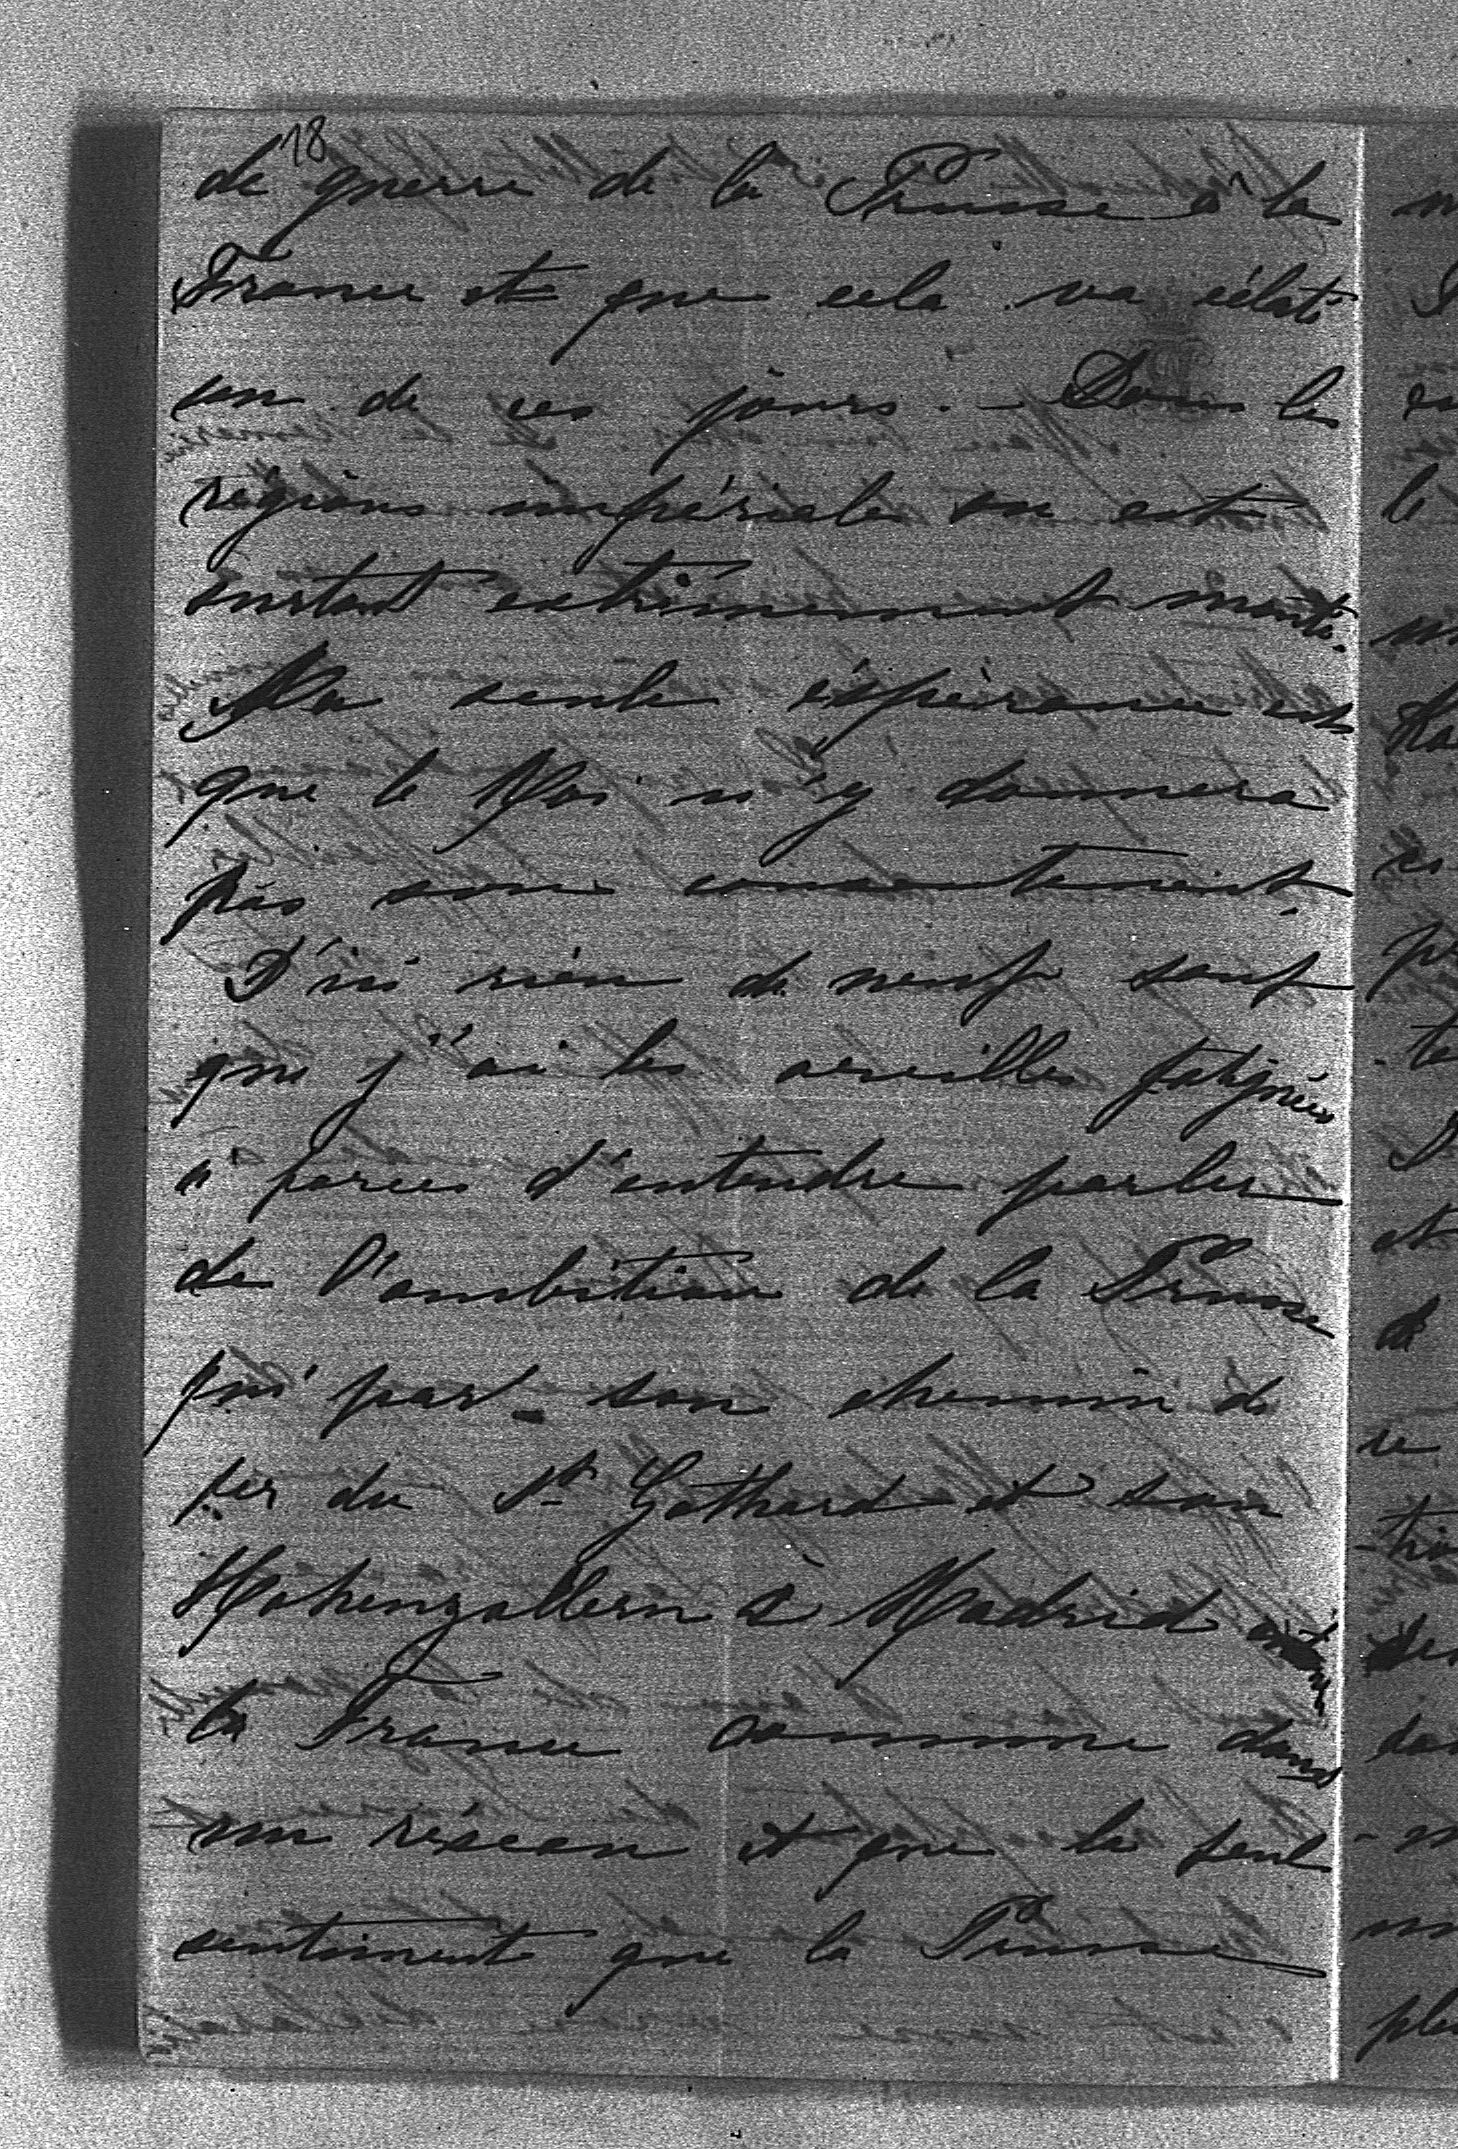 18
de guerre de la Prusse à la
France et que cela va éclater
un de ces jours. - Dans les
régions impériales on est
surtout extrêmement monté.
Ma seule éspérance est
que le Roi n'y donnera
pas son consentement.
D'ici rien de neuf sauf
que j'ai les oreilles fatiguées
à forces d'entendre parler
de l'ambition de la Prusse
qui par son chemin de
fer du St Gothard et son
Hohenzollern à Madrid
la France comme dans
un réseau et que le seul
sentiment que la Prusse